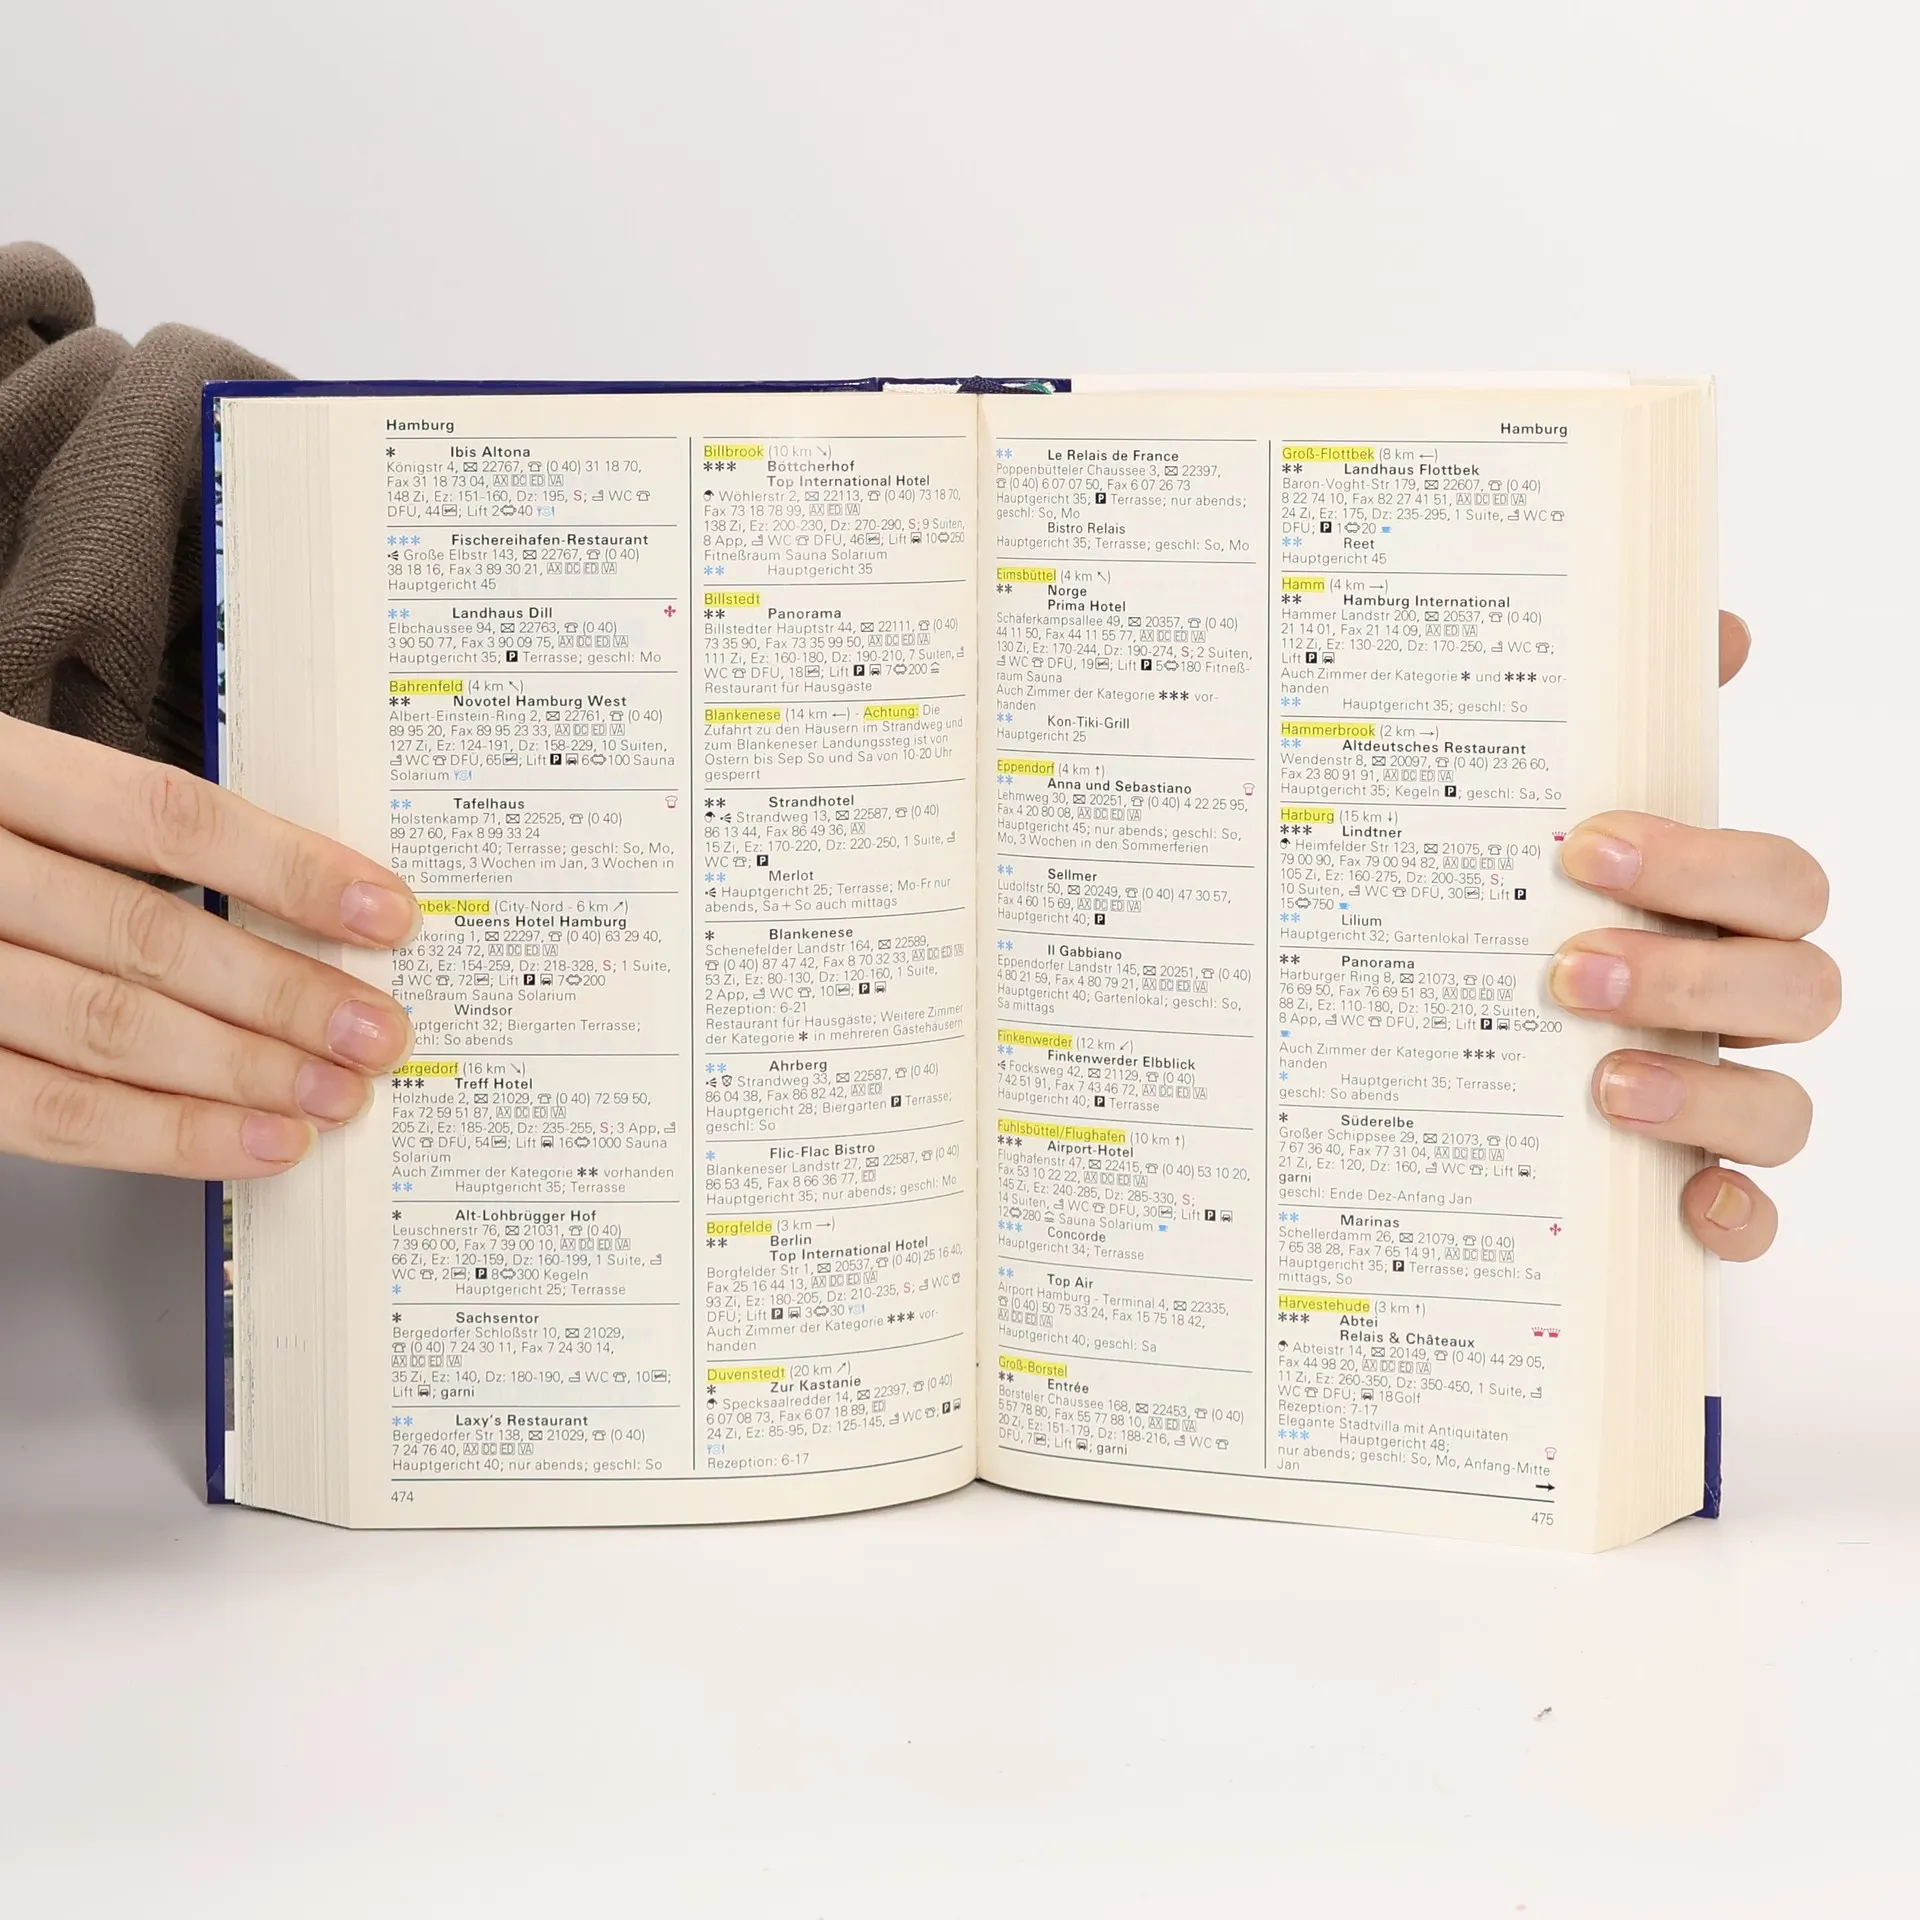 Hamburg
* Ibis Altona
Königstr 4, ✉ 22767, ☎ (0 40) 31 18 70,
Fax 31 18 73 04, AX DC ED VA
148 Zi, Ez: 151-160, Dz: 195, S; WC ☎
DFÜ, 44; Lift 2⇔40
*** Fischereihafen-Restaurant
Große Elbstr 143, ✉ 22767, ☎ (0 40)
38 18 16, Fax 3 89 30 21, AX DC ED VA
Hauptgericht 45
** Landhaus Dill
Elbchaussee 94, ✉ 22763, ☎ (0 40)
3 90 50 77, Fax 3 90 09 75, AX DC ED VA
Hauptgericht 35; P Terrasse; geschl: Mo
Bahrenfeld (4 km ↖)
** Novotel Hamburg West
Albert-Einstein-Ring 2, ✉ 22761, ☎ (0 40)
89 95 20, Fax 89 95 23 33, AX DC ED VA
127 Zi, Ez: 124-191, Dz: 158-229, 10 Suiten,
WC ☎ DFÜ, 65; Lift P 6⇔100 Sauna
Solarium
** Tafelhaus
Holstenkamp 71, ✉ 22525, ☎ (0 40)
89 27 60, Fax 8 99 33 24
Hauptgericht 40; Terrasse; geschl: So, Mo,
Sa mittags, 3 Wochen im Jan, 3 Wochen in
en Sommerferien
mbek-Nord (City-Nord - 6 km ↗)
Queens Hotel Hamburg
xikoring 1, ✉ 22297, ☎ (0 40) 63 29 40,
Fax 6 32 24 72, AX DC ED VA
180 Zi, Ez: 154-259, Dz: 218-328, S; 1 Suite,
WC ☎, 72; Lift P 7⇔200
Fitneßraum Sauna Solarium
* Windsor
uptgericht 32; Biergarten Terrasse;
chl: So abends
Bergedorf (16 km ↘)
*** Treff Hotel
Holzhude 2, ✉ 21029, ☎ (0 40) 72 59 50,
Fax 72 59 51 87, AX DC ED VA
205 Zi, Ez: 185-205, Dz: 235-255, S; 3 App,
WC ☎ DFÜ, 54; Lift 16⇔1000 Sauna
Solarium
Auch Zimmer der Kategorie ** vorhanden
** Hauptgericht 35; Terrasse
* Alt-Lohbrügger Hof
Leuschnerstr 76, ✉ 21031, ☎ (0 40)
7 39 60 00, Fax 7 39 00 10, AX DC ED VA
66 Zi, Ez: 120-159, Dz: 160-199, 1 Suite,
WC ☎, 2; P 8⇔300 Kegeln
* Hauptgericht 25; Terrasse
* Sachsentor
Bergedorfer Schloßstr 10, ✉ 21029,
☎ (0 40) 7 24 30 11, Fax 7 24 30 14,
AX DC ED VA
35 Zi, Ez: 140, Dz: 180-190, WC ☎, 10;
Lift; garni
** Laxy's Restaurant
Bergedorfer Str 138, ✉ 21029, ☎ (0 40)
7 24 76 40, AX DC ED VA
Hauptgericht 40; nur abends; geschl: So
474
Billbrook (10 km ↘)
*** Böttcherhof
Top International Hotel
Wöhlerstr 2, ✉ 22113, ☎ (0 40) 73 18 70,
Fax 73 18 78 99, AX ED VA
138 Zi, Ez: 200-230, Dz: 270-290, S; 9 Suiten,
8 App, WC ☎ DFÜ, 46; Lift 10⇔250
Fitneßraum Sauna Solarium
** Hauptgericht 35
Billstedt
** Panorama
Billstedter Hauptstr 44, ✉ 22111, ☎ (0 40)
73 35 90, Fax 73 35 99 50, AX DC ED VA
111 Zi, Ez: 160-180, Dz: 190-210, 7 Suiten,
WC ☎ DFÜ, 18; Lift P 7⇔200
Restaurant für Hausgäste
Blankenese (14 km ←) - Achtung: Die
Zufahrt zu den Häusern im Strandweg und
zum Blankeneser Landungssteg ist von
Ostern bis Sep So und Sa von 10-20 Uhr
gesperrt
** Strandhotel
Strandweg 13, ✉ 22587, ☎ (0 40)
86 13 44, Fax 86 49 36, AX
15 Zi, Ez: 170-220, Dz: 220-250, 1 Suite,
WC ☎; P
** Merlot
Hauptgericht 25; Terrasse; Mo-Fr nur
abends, Sa + So auch mittags
* Blankenese
Schenefelder Landstr 164, ✉ 22589,
☎ (0 40) 87 47 42, Fax 8 70 32 33, AX DC ED VA
53 Zi, Ez: 80-130, Dz: 120-160, 1 Suite,
2 App, WC ☎, 10; P
Rezeption: 6-21
Restaurant für Hausgäste; Weitere Zimmer
der Kategorie * in mehreren Gästehäusern
** Ahrberg
Strandweg 33, ✉ 22587, ☎ (0 40)
86 04 38, Fax 86 82 42, AX ED
Hauptgericht 28; Biergarten P Terrasse;
geschl: So
* Flic-Flac Bistro
Blankeneser Landstr 27, ✉ 22587, ☎ (0 40)
86 53 45, Fax 8 66 36 77, ED
Hauptgericht 35; nur abends; geschl: Mo
Borgfelde (3 km →)
** Berlin
Top International Hotel
Borgfelder Str 1, ✉ 20537, ☎ (0 40) 25 16 40,
Fax 25 16 44 13, AX DC ED VA
93 Zi, Ez: 180-205, Dz: 210-235, S; WC ☎
DFÜ; Lift P 3⇔30
Auch Zimmer der Kategorie *** vor-
handen
Duvenstedt (20 km ↗)
* Zur Kastanie
Specksaalredder 14, ✉ 22397, ☎ (0 40)
6 07 08 73, Fax 6 07 18 89, ED
24 Zi, Ez: 85-95, Dz: 125-145, WC ☎; P
Rezeption: 6-17
Hamburg
** Le Relais de France
Poppenbütteler Chaussee 3, ✉ 22397,
☎ (0 40) 6 07 07 50, Fax 6 07 26 73
Hauptgericht 35; P Terrasse; nur abends;
geschl: So, Mo
Bistro Relais
Hauptgericht 35; Terrasse; geschl: So, Mo
Eimsbüttel (4 km ↖)
** Norge
Prima Hotel
Schäferkampsallee 49, ✉ 20357, ☎ (0 40)
44 11 50, Fax 44 11 55 77, AX DC ED VA
130 Zi, Ez: 170-244, Dz: 190-274, S; 2 Suiten,
WC ☎ DFÜ, 19; Lift P 5⇔180 Fitneß-
raum Sauna
Auch Zimmer der Kategorie *** vor-
handen
** Kon-Tiki-Grill
Hauptgericht 25
Eppendorf (4 km ↑)
** Anna und Sebastiano
Lehmweg 30, ✉ 20251, ☎ (0 40) 4 22 25 95,
Fax 4 20 80 08, AX DC ED VA
Hauptgericht 45; nur abends; geschl: So,
Mo, 3 Wochen in den Sommerferien
** Sellmer
Ludolfstr 50, ✉ 20249, ☎ (0 40) 47 30 57,
Fax 4 60 15 69, AX DC ED VA
Hauptgericht 40; P
** Il Gabbiano
Eppendorfer Landstr 145, ✉ 20251, ☎ (0 40)
4 80 21 59, Fax 4 80 79 21, AX DC ED VA
Hauptgericht 40; Gartenlokal; geschl: So,
Sa mittags
Finkenwerder (12 km ↙)
** Finkenwerder Elbblick
Focksweg 42, ✉ 21129, ☎ (0 40)
7 42 51 91, Fax 7 43 46 72, AX DC ED VA
Hauptgericht 40; P Terrasse
Fuhlsbüttel/Flughafen (10 km ↑)
*** Airport-Hotel
Flughafenstr 47, ✉ 22415, ☎ (0 40) 53 10 20,
Fax 53 10 22 22, AX DC ED VA
145 Zi, Ez: 240-285, Dz: 285-330, S;
14 Suiten, WC ☎ DFÜ, 30; Lift P
12⇔280 Sauna Solarium
*** Concorde
Hauptgericht 34; Terrasse
** Top Air
Airport Hamburg - Terminal 4, ✉ 22335,
☎ (0 40) 50 75 33 24, Fax 15 75 18 42,
AX DC ED VA
Hauptgericht 40; geschl: Sa
Groß-Borstel
** Entrée
Borsteler Chaussee 168, ✉ 22453, ☎ (0 40)
5 57 78 80, Fax 55 77 88 10, AX ED VA
20 Zi, Ez: 151-179, Dz: 188-216, WC ☎
DFÜ, 7; Lift; garni
Groß-Flottbek (8 km ←)
** Landhaus Flottbek
Baron-Voght-Str 179, ✉ 22607, ☎ (0 40)
8 22 74 10, Fax 82 27 41 51, AX DC ED VA
24 Zi, Ez: 175, Dz: 235-295, 1 Suite, WC ☎
DFÜ; P 1⇔20
** Reet
Hauptgericht 45
Hamm (4 km →)
** Hamburg International
Hammer Landstr 200, ✉ 20537, ☎ (0 40)
21 14 01, Fax 21 14 09, AX ED VA
112 Zi, Ez: 130-220, Dz: 170-250, WC ☎;
Lift P
Auch Zimmer der Kategorie * und *** vor-
handen
** Hauptgericht 35; geschl: So
Hammerbrook (2 km →)
** Altdeutsches Restaurant
Wendenstr 8, ✉ 20097, ☎ (0 40) 23 26 60,
Fax 23 80 91 91, AX DC ED VA
Hauptgericht 35; Kegeln P; geschl: Sa, So
Harburg (15 km ↓)
*** Lindtner
Heimfelder Str 123, ✉ 21075, ☎ (0 40)
79 00 90, Fax 79 00 94 82, AX DC ED VA
105 Zi, Ez: 160-275, Dz: 200-355, S;
10 Suiten, WC ☎ DFÜ, 30; Lift P
15⇔750
** Lilium
Hauptgericht 32; Gartenlokal Terrasse
** Panorama
Harburger Ring 8, ✉ 21073, ☎ (0 40)
76 69 50, Fax 76 69 51 83, AX DC ED VA
88 Zi, Ez: 110-180, Dz: 150-210, 2 Suiten,
8 App, WC ☎ DFÜ, 2; Lift P 5⇔200
Auch Zimmer der Kategorie *** vor-
handen
* Hauptgericht 35; Terrasse;
geschl: So abends
* Süderelbe
Großer Schippsee 29, ✉ 21073, ☎ (0 40)
7 67 36 40, Fax 77 31 04, AX DC ED VA
21 Zi, Ez: 120, Dz: 160, WC ☎; Lift;
garni
geschl: Ende Dez-Anfang Jan
** Marinas
Schellerdamm 26, ✉ 21079, ☎ (0 40)
7 65 38 28, Fax 7 65 14 91, AX DC ED VA
Hauptgericht 35; P Terrasse; geschl: Sa
mittags, So
Harvestehude (3 km ↑)
*** Abtei
Relais & Châteaux
Abteistr 14, ✉ 20149, ☎ (0 40) 44 29 05,
Fax 44 98 20, AX DC ED VA
11 Zi, Ez: 260-350, Dz: 350-450, 1 Suite,
WC ☎ DFÜ; 18 Golf
Rezeption: 7-17
Elegante Stadtvilla mit Antiquitäten
*** Hauptgericht 48;
nur abends; geschl: So, Mo, Anfang-Mitte
Jan
→
475